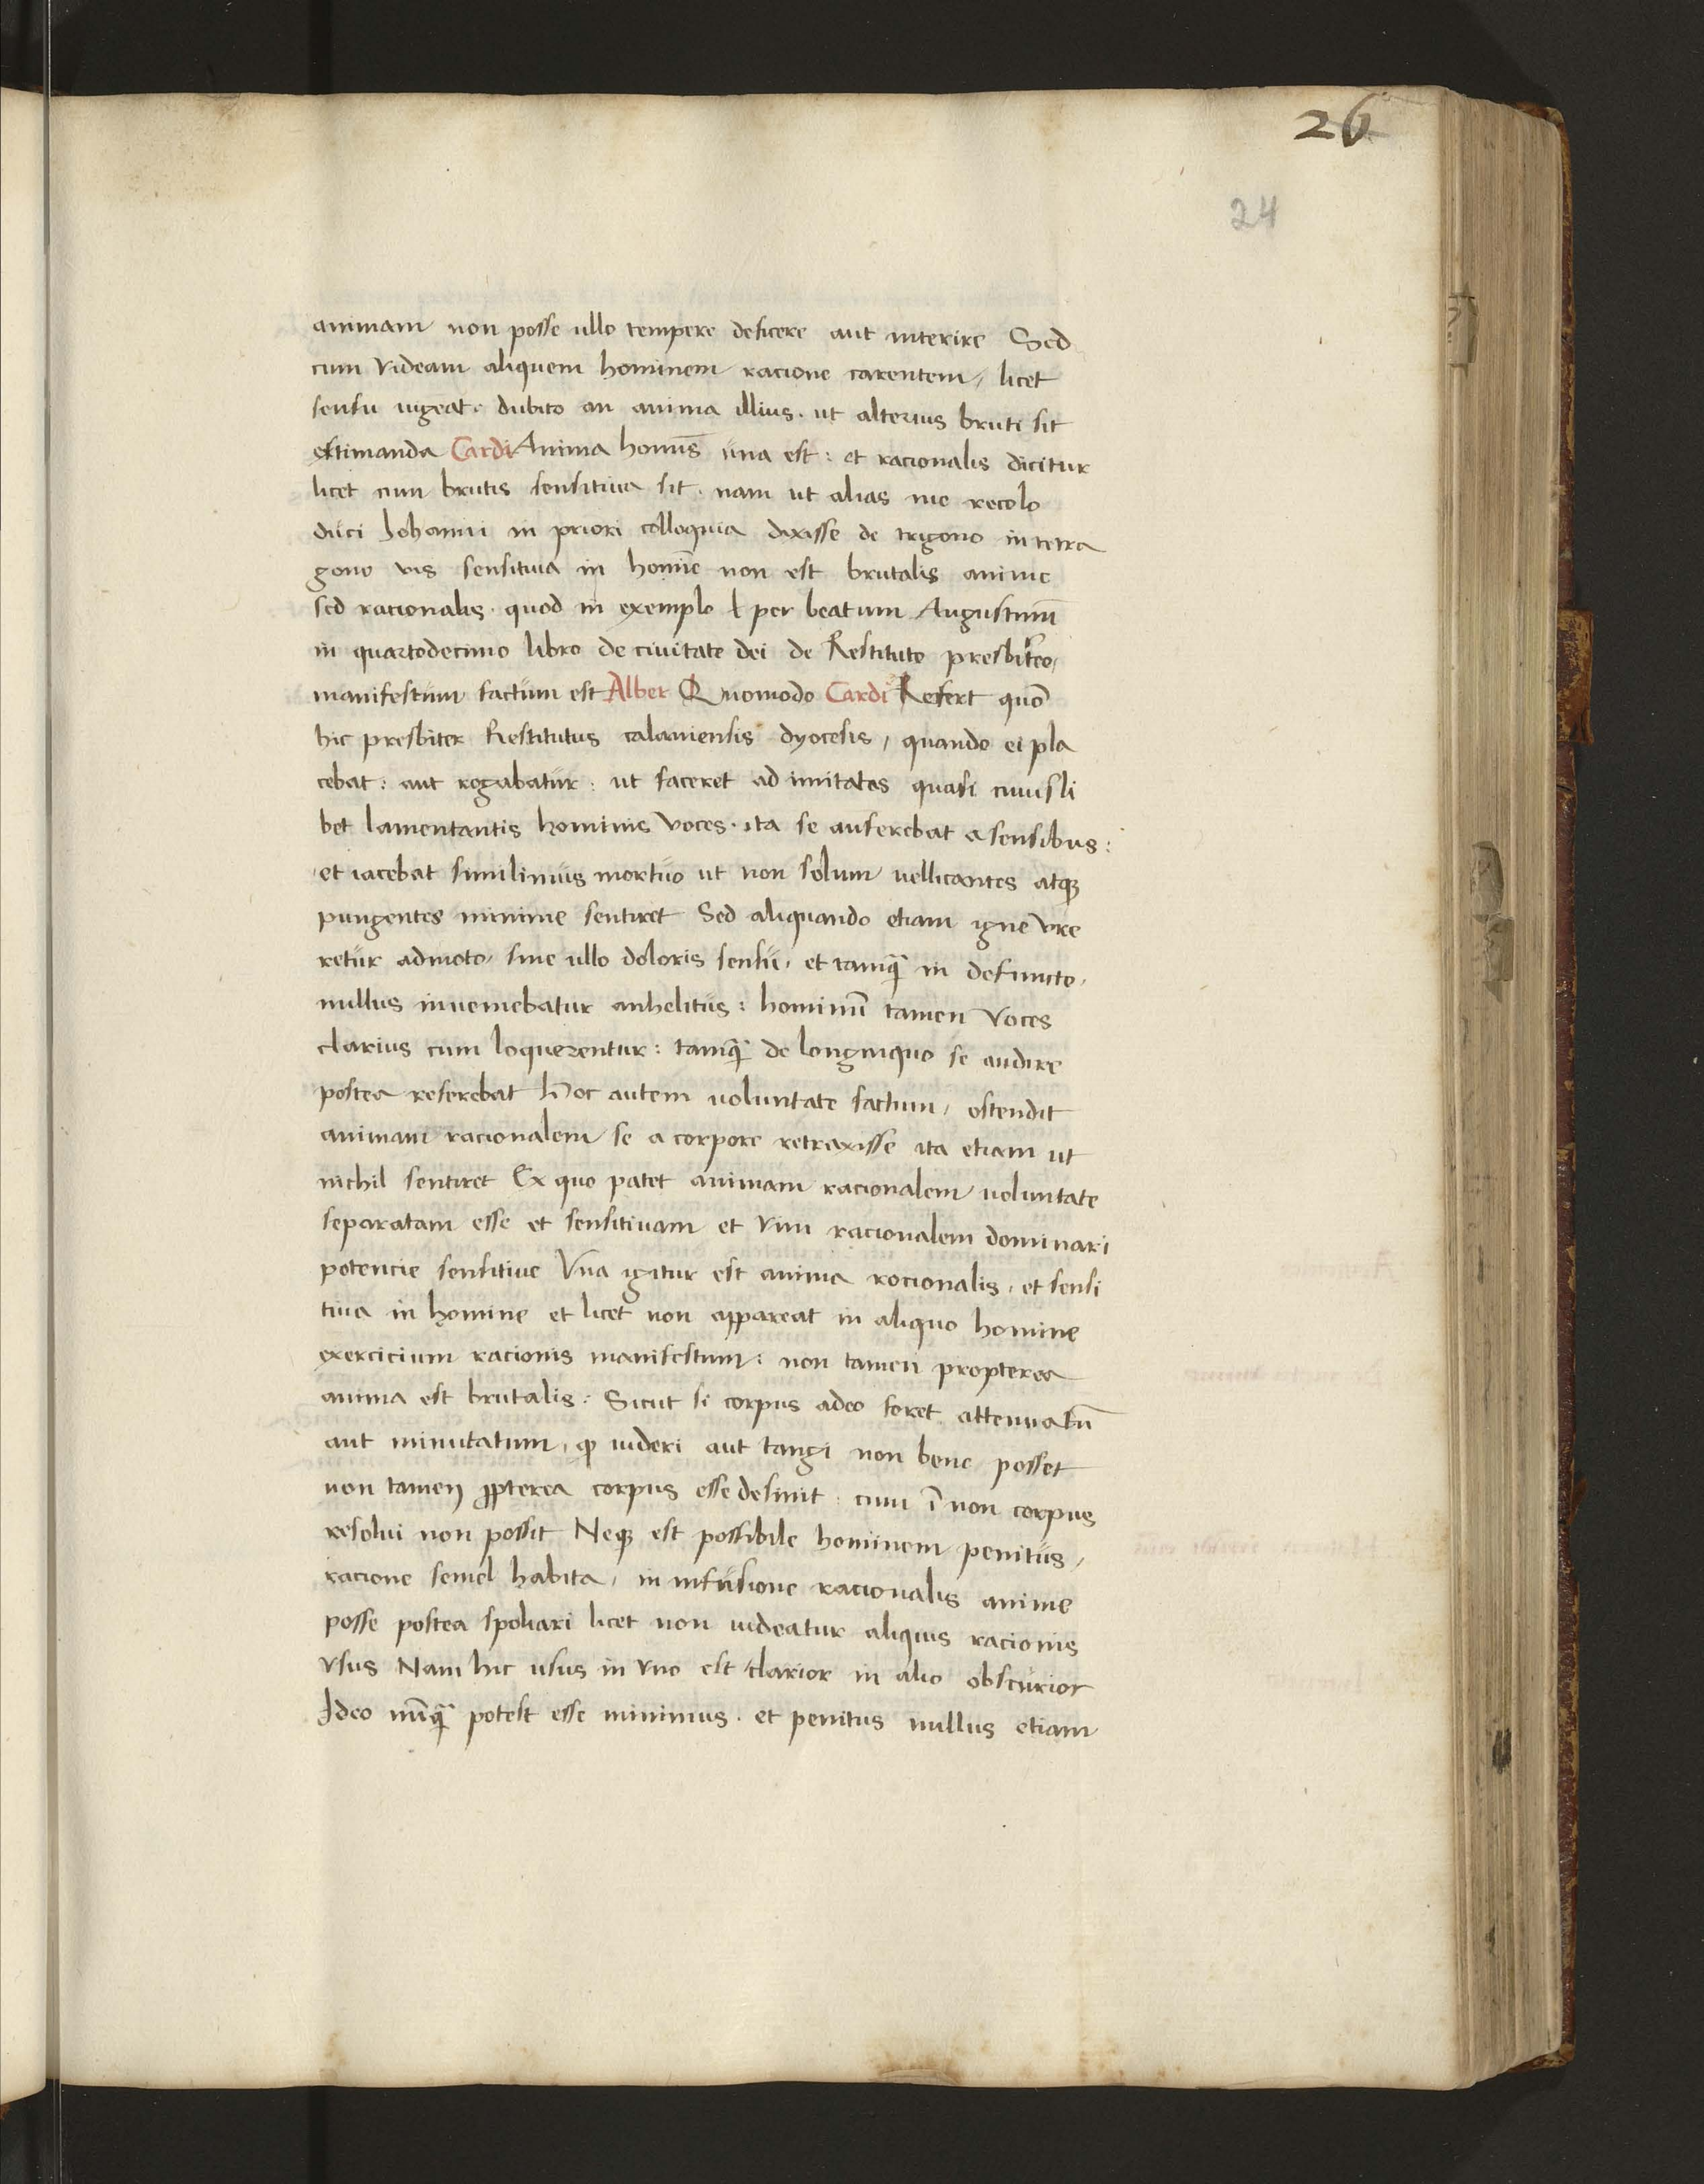 26
24
animam non posse ullo tempere deficere aut interire Sed
cum videam aliquem hominem racione carentem, licet
sensu uigeat. dubito an anima illius. ut alterius bruti sit
extimanda Cardi Anima homīs una est: et racionalis dicitur
licet cum brutis sensitiua sit. nam ut alias me recolo
duci Johanni in priori colloquia dixisse de trigono in tetra
gono vis sensitiua in homīe non est brutalis anime
sed racionalis. quod in exemplo ł per beatum Augustinū
in quartodecimo libro de ciuitate dei de Restituto presbitero,
manifestum factum est Alber Quomodo Cardi Refert quō
hic presbiter Restitutus calamensis dyocesis, quando ei pla
cebat: aut rogabatur: ut faceret ad imitatas quasi cuiusli
bet lamentantis hominis voces. ita se auferebat a sensibus:
et iacebat simillimus mortuo ut non solum uellicantes atqꝫ
pungentes minime sentiret Sed aliquando etiam igne vre
retur admoto, sine ullo doloris sensu. et tamꝙ̄ in defuncto.
nullus inueniebatur anhelitus: hominū tamen voces
clarius cum loquerentur: tamꝙ̄ de longinquo se audire
postea referebat Hoc autem uoluntate factum, ostendit
animam racionalem se a corpore retraxisse ita etiam ut
nichil sentiret Ex quo patet animam racionalem uoluntate
separatam esse et sensitiuam et vim racionalem dominari
potencie sensitiue Vna igitur est anima rocionalis, et sensi
tiua in homine et licet non appareat in aliquo homine
exercicium racionis manifestum: non tamen propterea
anima est brutalis: Sicut si corpus adeo foret attenuatū
aut minutatum, ꝙ uideri aut tangi non bene posset
non tamen ꝓpterea corpus esse desinit. cum ī non corpus
resolui non possit Neqꝫ est possibile hominem penitus,
racione semel habita, in infusione racionalis anime
posse postea spoliari licet non uideatur aliquis racionis
vsus Nam hic usus in vno est clarior in alio obscurior
Ideo nūꝙ̄ potest esse minimus. et penitus nullus etiam